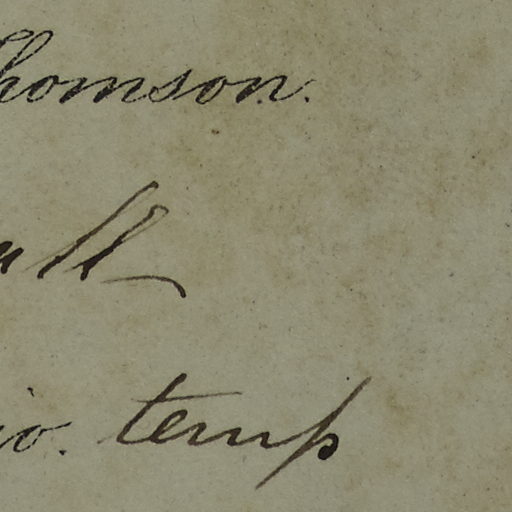 Thomson.
ull
io. temp